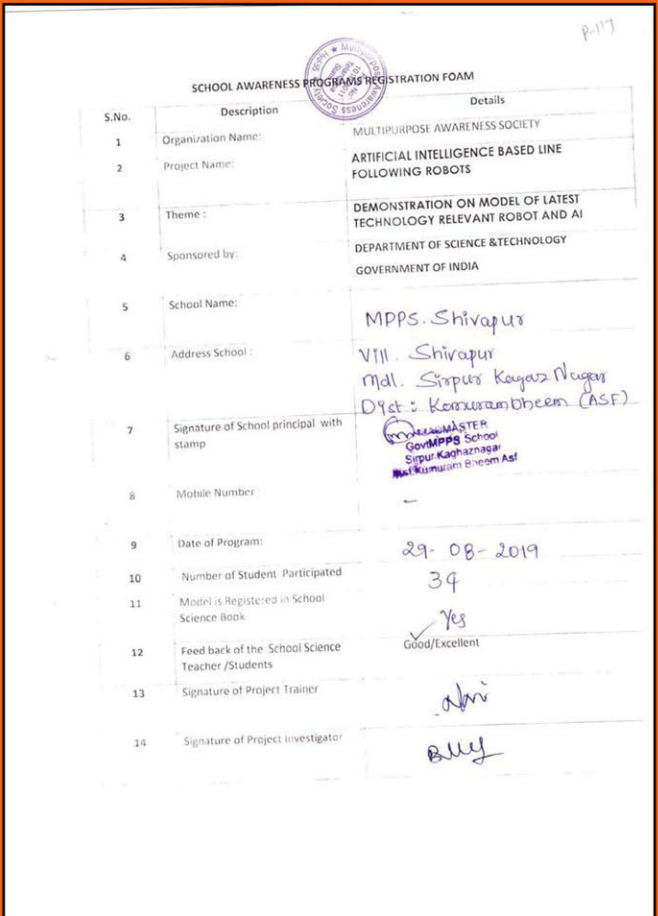 P-117
SCHOOL AWARENESS PROGRAMS REGISTRATION FOAM
S.No. Description Details
1 Organization Name: MULTIPURPOSE AWARENESS SOCIETY
2 Project Name: ARTIFICIAL INTELLIGENCE BASED LINE
FOLLOWING ROBOTS
3 Theme : DEMONSTRATION ON MODEL OF LATEST
TECHNOLOGY RELEVANT ROBOT AND AI
4 Sponsored by: DEPARTMENT OF SCIENCE &TECHNOLOGY
GOVERNMENT OF INDIA
5 School Name: MPPS. Shivapur
6 Address School : Vill. Shivapur
Mdl. Sirpur Kagaz Nagar
Dist : Komurambheem (ASF)
7 Signature of School principal with
stamp
MASTER
Govt MPPS School
Sirpur.Kaghaznagar
Kumuram Bheem Asf
8 Mobile Number -
9 Date of Program: 29-08-2019
10 Number of Student Participated
11 Model is Registered in School
Science Book Yes
12 Feed back of the School Science
Teacher /Students Good/Excellent
13 Signature of Project Trainer
14 Signature of Project Investigator